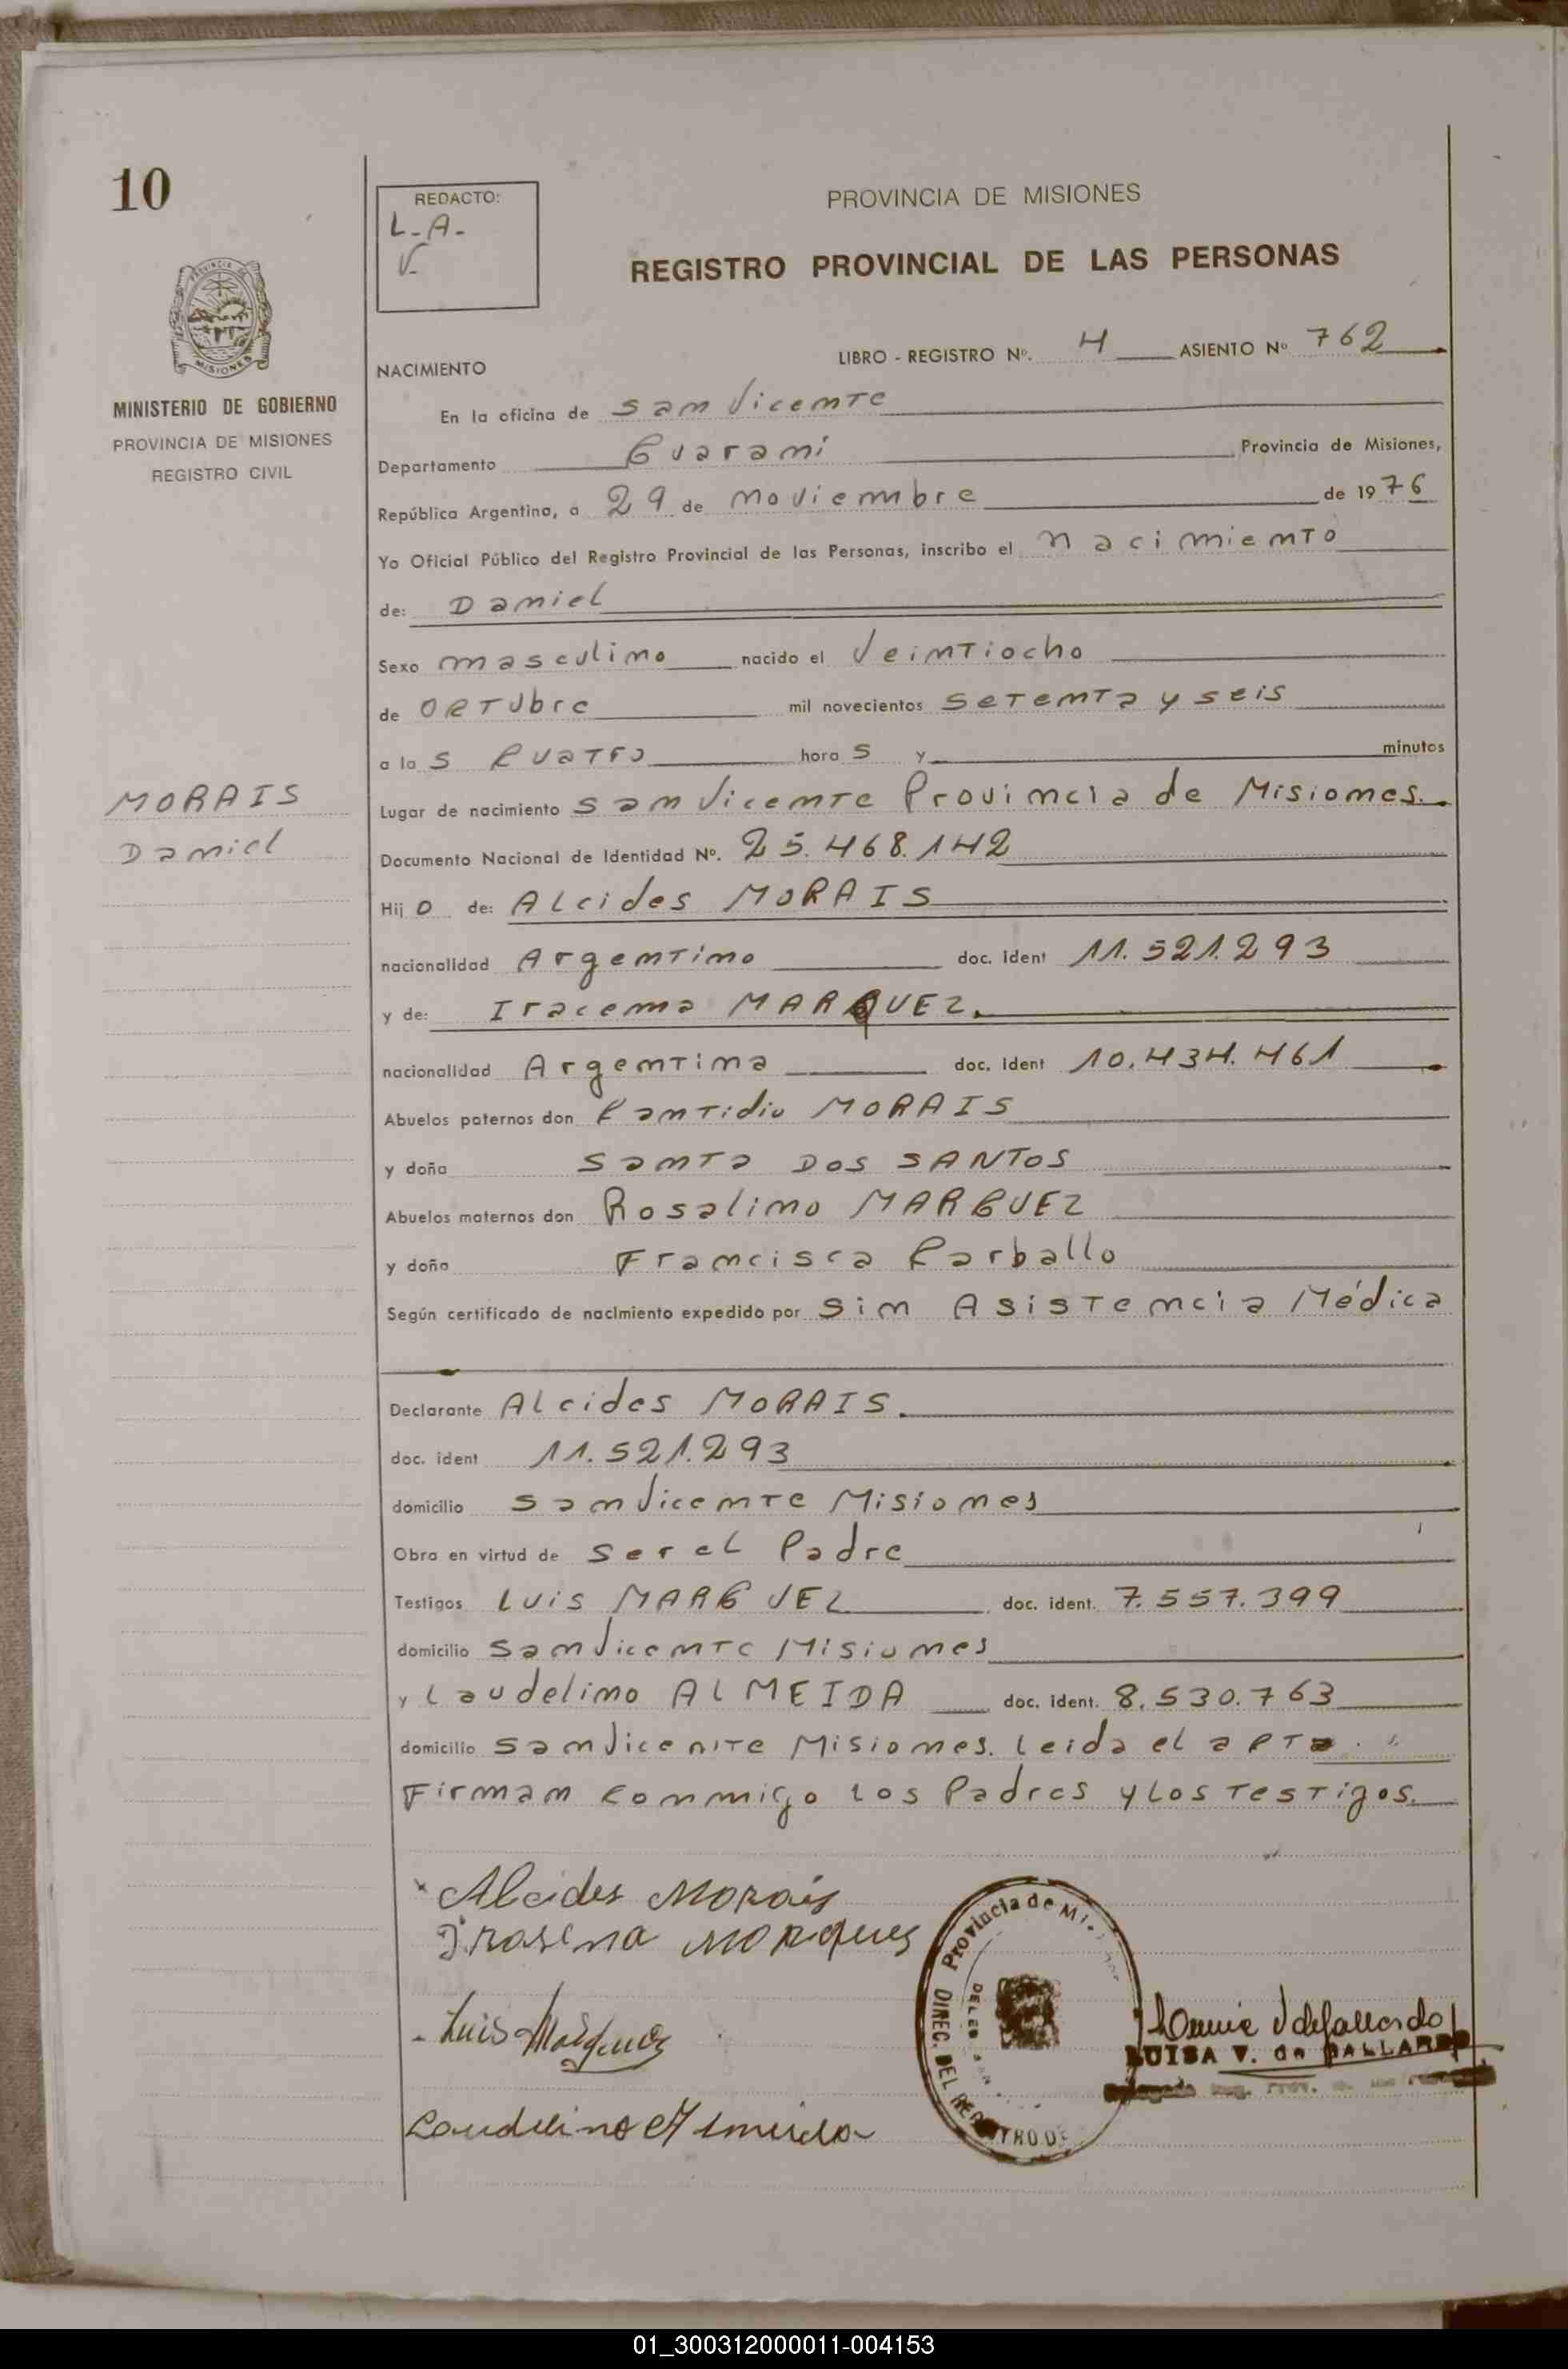 10
REDACTO:
L-A-
V-
PROVINCIA DE MISIONES
REGISTRO PROVINCIAL DE LAS PERSONAS
PROVINCIA DE
MISIONES
MINISTERIO DE GOBIERNO
PROVINCIA DE MISIONES
REGISTRO CIVIL
NACIMIENTO LIBRO - REGISTRO Nº. 4 ASIENTO Nº 762
En la oficina de San Vicente
Departamento Guaraní Provincia de Misiones,
República Argentina, a 29 de noviembre de 1976
Yo Oficial Público del Registro Provincial de las Personas, inscribo el nacimiento
de: Daniel
Sexo masculino nacido el veintiocho
de octubre mil novecientos setenta y seis
a la s cuatro hora s y minutos
MORAIS
Daniel
Lugar de nacimiento San Vicente Provincia de Misiones.
Documento Nacional de Identidad Nº. 25.468.142
Hij o de: Alcides MORAIS
nacionalidad Argentino doc. ident 11.521.293
y de: Iracema MARQUEZ.
nacionalidad Argentina doc. ident 10.434.461
Abuelos paternos don Cantidio MORAIS
y doña Santa DOS SANTOS
Abuelos maternos don Rosalino MARQUEZ
y doña Francisca Carballo
Según certificado de nacimiento expedido por Sin Asistencia Médica
Declarante Alcides MORAIS.
doc. ident 11.521.293
domicilio San Vicente Misiones
Obra en virtud de ser el Padre
Testigos Luis MARQUEZ doc. ident. 7.557.399
domicilio San Vicente Misiones
y Laudelino ALMEIDA doc. ident. 8.530.763
domicilio San Vicente Misiones. Leida el acta
Firman conmigo los Padres y los testigos.
Alcides Morais
Irasena Morques
Luis Marquez
Laudelino Almeida
Provincia de Mi
DIREC. DEL REGISTRO DE
LUISA V. de GALLARDO
01_300312000011-004153